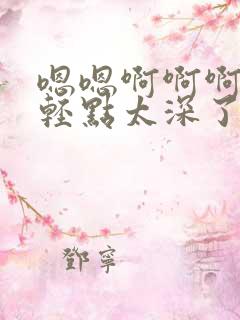 嗯嗯啊啊啊
轻點太深了
鄧寧